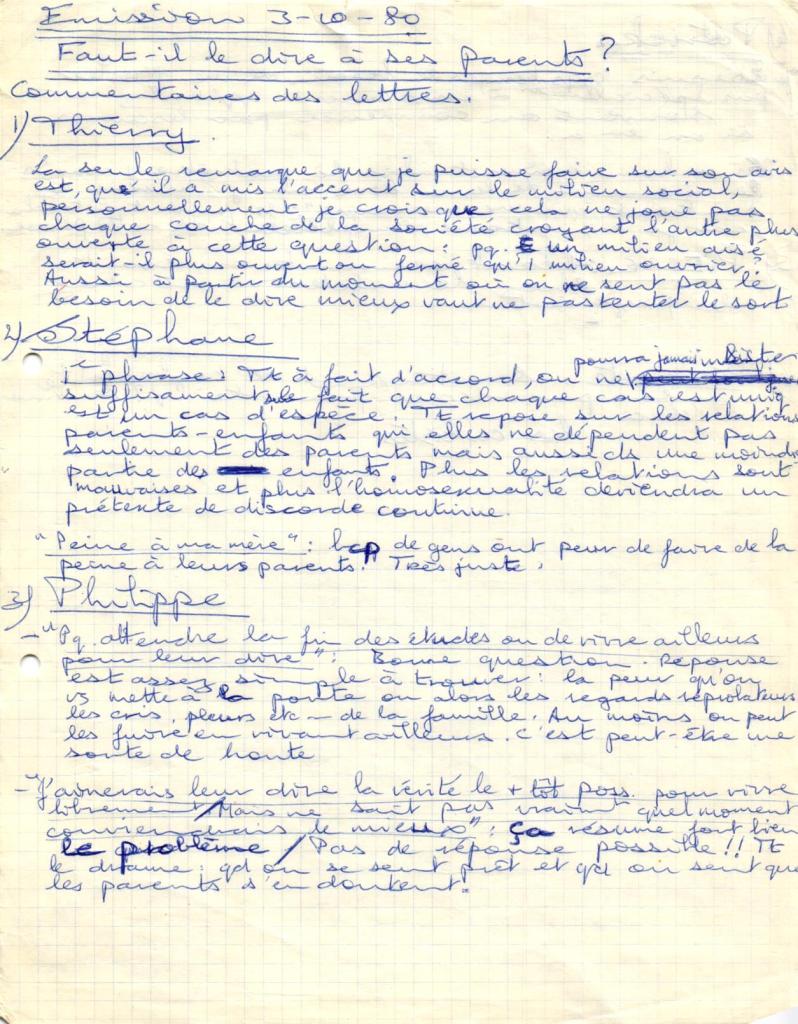 Emission 3-10-80
Faut-il le dire à ses parents?
Commentaires des lettres.
1) Thierry
La seule remarque que je puisse faire sur son avis
est, que il a mis l'accent sur le milieu social,
personnellement je crois que cela ne joue pas,
chaque couche de la société croyant l'autre plus
ouverte à cette question: pq. un milieu aisé
serait-il plus ouvert ou fermé qu'1 milieu ouvrier?
Aussi à partir du moment où on ne sent pas le
besoin de le dire mieux vaut ne pas tenter le sort
2) Stéphane
pourra jamais insister
1e phrase: Tt à fait d'accord, on ne
suffisament sur le fait que chaque cas est uniq
est un cas d'espèce. Tt repose sur les relations
parents-enfants qui elles ne dépendent pas
seulement des parents mais aussi ds une moindre
partie des enfants. Plus les relations sont
mauvaises et plus l'homosexualité deviendra un
prétexte de discorde continue.
"Peine à ma mère": bcp de gens ont peur de faire de la
peine à leurs parents. Très juste.
3) Philippe
- "Pq. attendre la fin des études ou de vivre ailleurs
pour leur dire": Bonne question. Réponse
est assez simple à trouver: la peur qu'on
vs mette à la porte ou alors les regards réprobateurs
les cris, pleurs etc - de la famille. Au moins on peut
les fuire en vivant ailleurs. C'est peut-être une
sorte de honte
- "J'aimerais leur dire la vérité le + tôt poss. pour vivre
librement / Mais ne sait pas vraimt quel moment
conviendrais le mieux": ça résume fort bien
le problème / Pas de réponse possible!! Tt
le drame: qd on se sent prêt et qd on sent que
les parents s'en doutent.